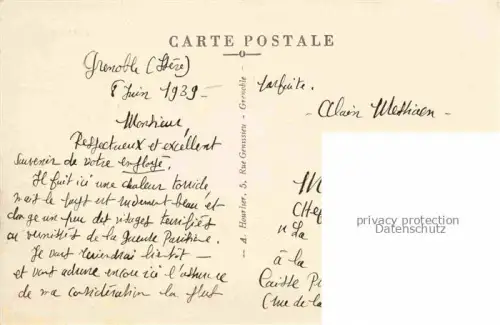 CARTE POSTALE
Grenoble (Isère)
8 Juin 1939 -
Monsieur
Respectueux et excellent
souvenir de votre employé.
Il fait ici une chaleur torride
mais le pays est rudement beau et
change un peu des visages terrifiés
ou de la Parisienne.
Je vous reviendrai bientôt -
et vous adresse encore ici l'assurance
de ma considération la plus
A. Hourlier, 5, Rue Genissieu - Grenoble -
parfaite.
- Alain Messiaen -
M
Chef
"La
à la
Caisse P
(rue de la
privacy protection
Datenschutz